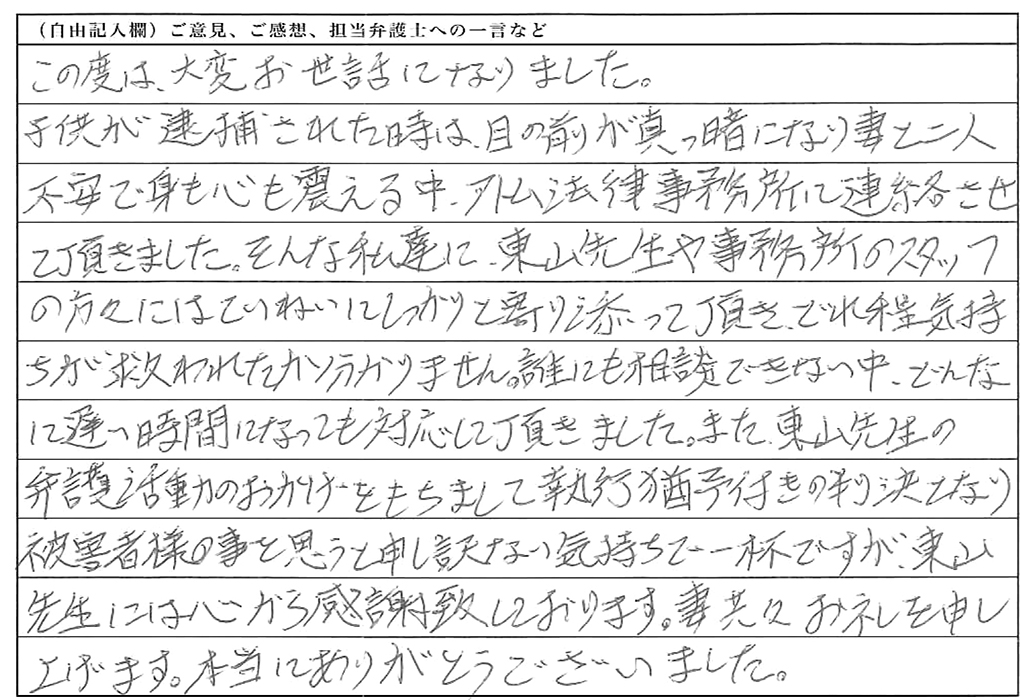 （自由記入欄）ご意見、ご感想、担当弁護士への一言など
この度は、大変お世話になりました。
子供が逮捕された時は、目の前が真っ暗になり妻と二人
不安で身も心も震える中、アトム法律事務所に連絡させ
て頂きました。そんな私達に、東山先生や事務所のスタッフ
の方々にはていねいにしっかりと寄り添って頂き、どれ程気持
ちが救われたか分かりません。誰にも相談できない中、どんな
に遅い時間になっても対応して頂きました。また、東山先生の
弁護活動のおかげをもちまして執行猶予付きの判決となり
被害者様の事を思うと申し訳ない気持ちで一杯ですが、東山
先生には心から感謝致しております。妻共々お礼を申し
上げます。本当にありがとうございました。